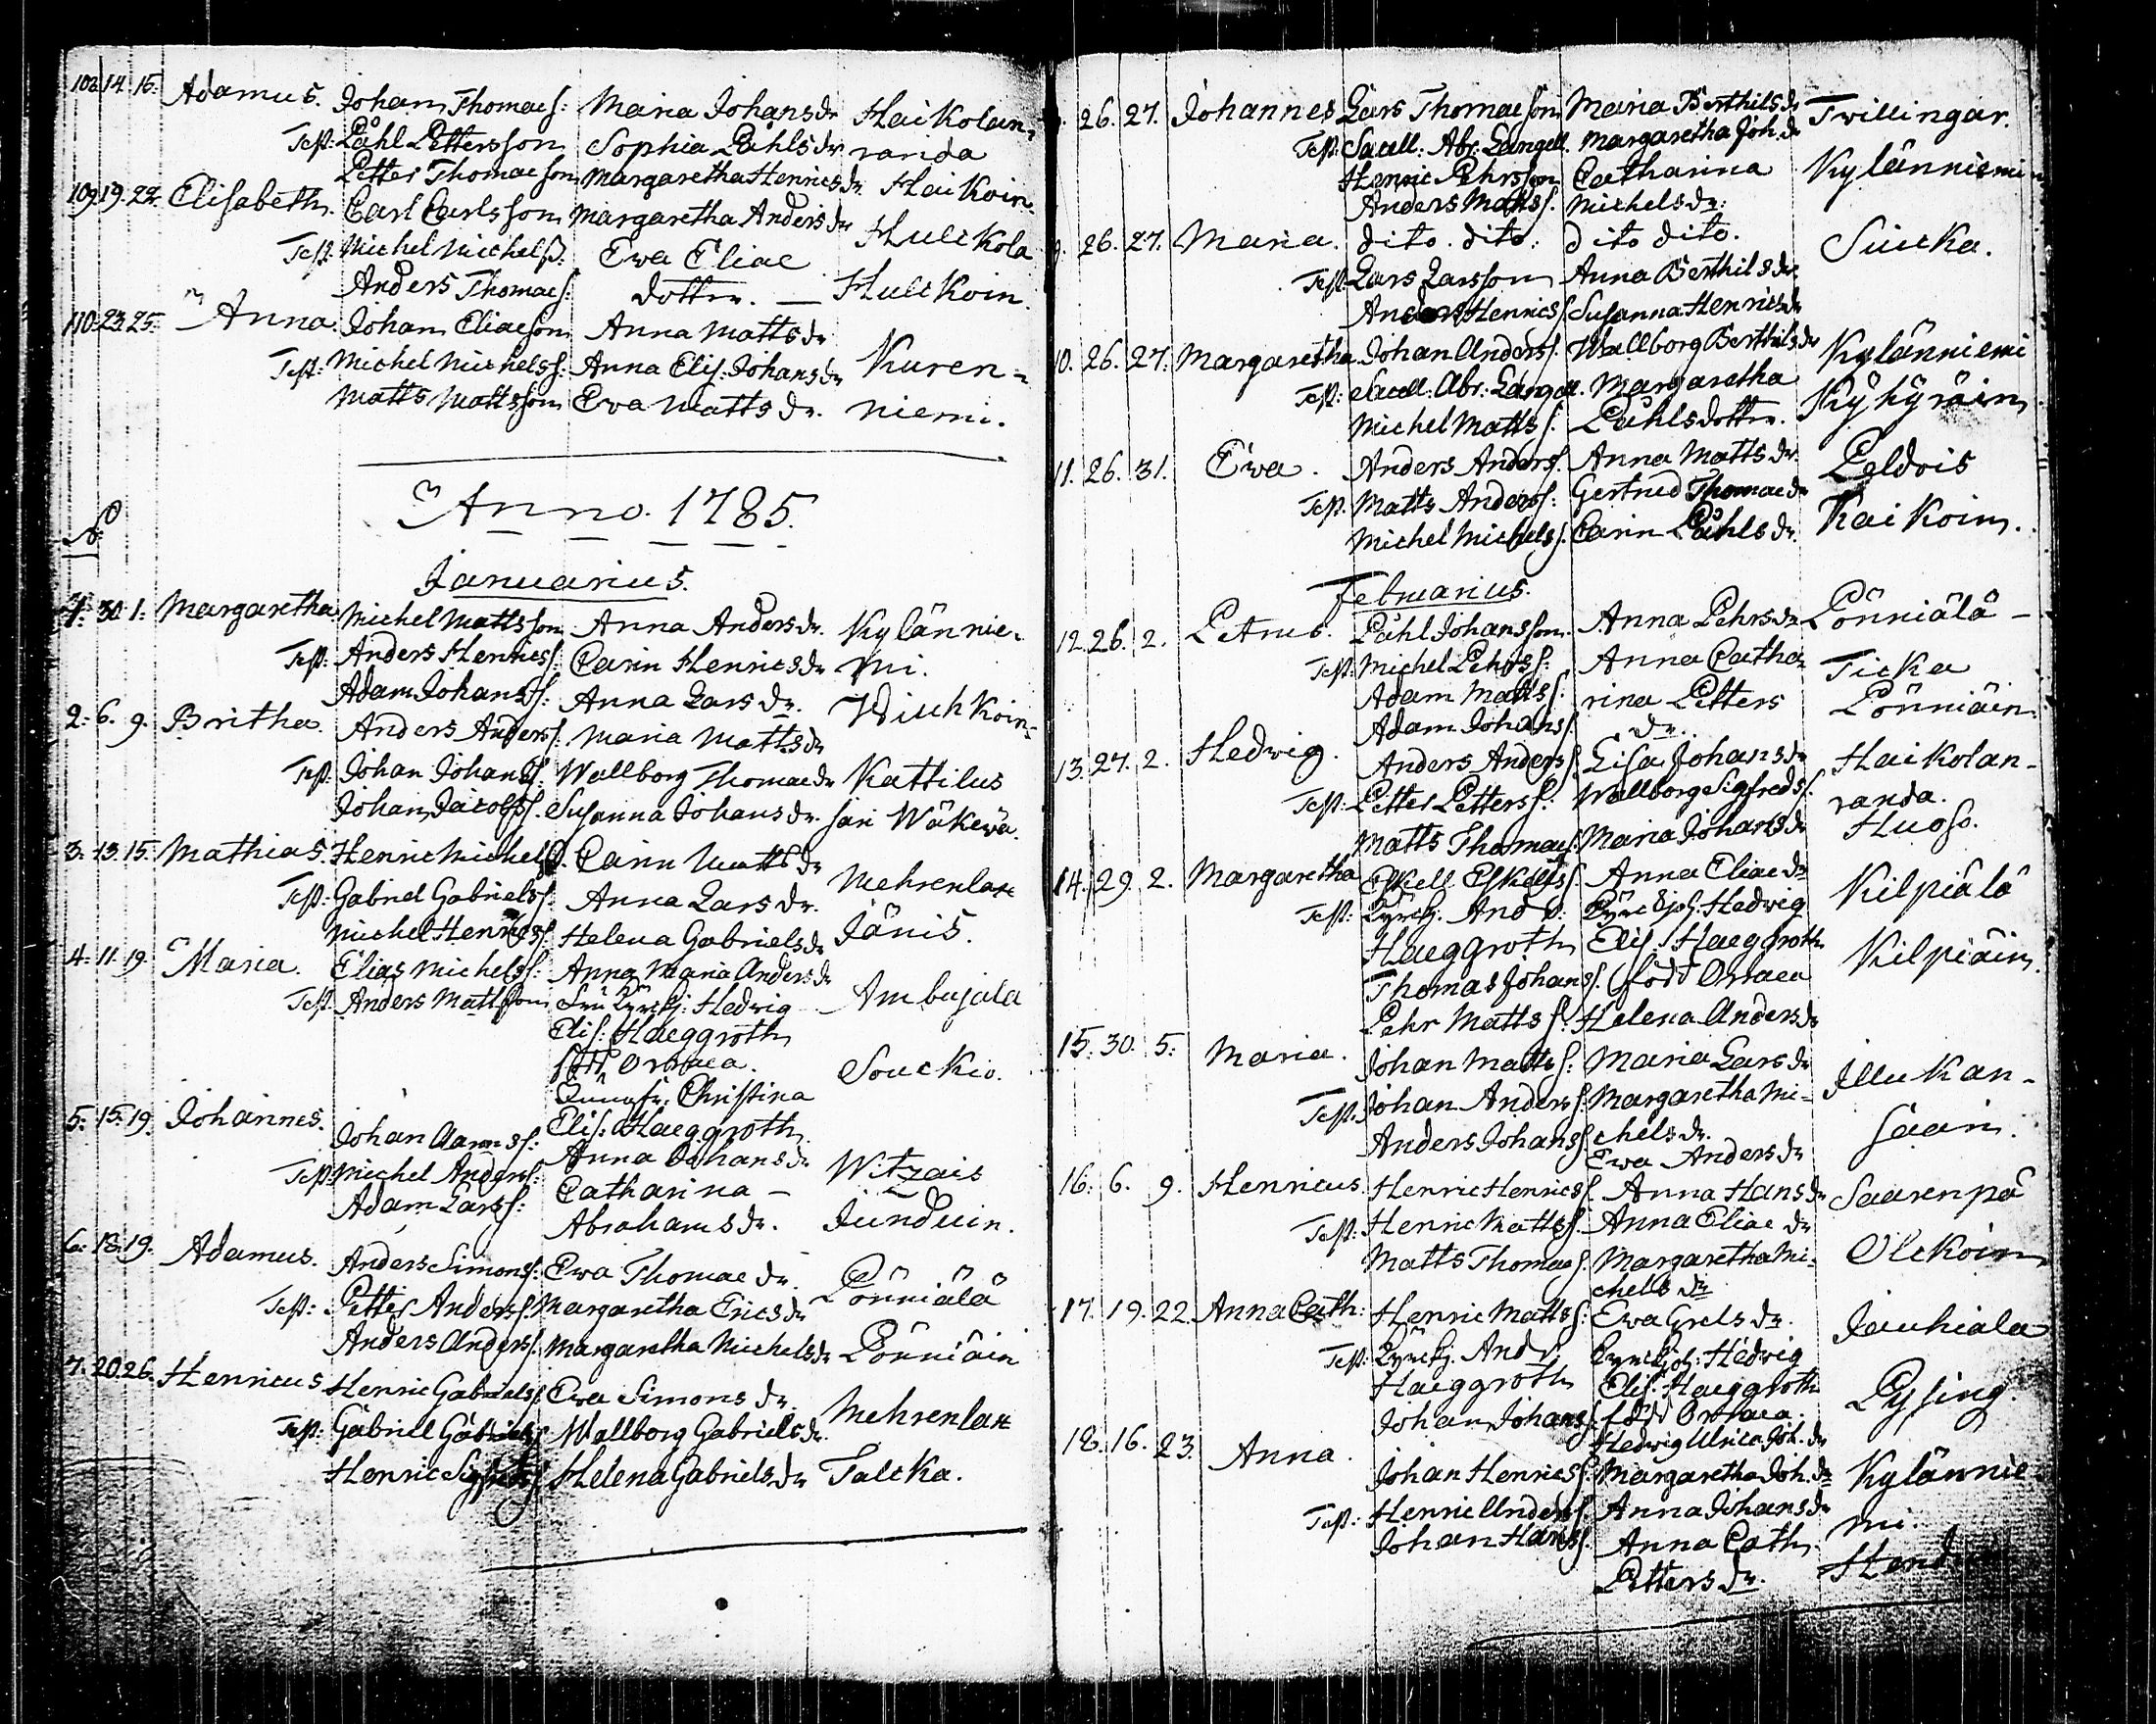 108. 14. 15. Adamus. Johan Thomaes: Maria Johansdr Haikolan-
Test: Påhl Pettersson Sophia Påhlsdr randa
Petter Thomaeson Margaretha Henricsdr Haikoin.
109. 19. 22. Elisabeth. Carl Carlsson Margaretha Andersdr Hulckola
Test: Michel Michelss. Ewa Eliae
Anders Thomaes: dotter. — Hulckoin
110. 23. 25. Anna Johan Eliaeson Anna Mattsdr
Test: Michel Michelss: Anna Elis: Johansdr Kuren=
Matts Mattsson Ewa Mattsdr. niemi.
Anno. 1785.
No
Januarius.
1. 30. 1. Margaretha Michel Mattsson Anna Andersdr. Kylännie-
Test: Anders Henricss: Carin Henricsdr mi.
Adam Johanss: Anna Larsdr. Wiuhkoin
2. 6. 9. Britha. Anders Anderss: Maria Mattsdr
Test: Johan Johanss: Wallborg Thomaedr Kattilus
Johan Jacobss. Susanna Johansdr. sari Wäkewä.
3. 13. 15. Mathias. Henric Michelss. Carin Mattsdr Mehrenlax
Test: Gabriel Gabrielss: Anna Larsdr.
Michel Henricss: Helena Gabrielsdr Jänis.
4. 11. 19. Maria. Elias Michelss: Anna Maria Andersdr Ambujala
Test: Anders Mattsson Fru Kyrckj: Hedwig
Elis: Haeggroth
född Orraea. Souckio.
Jungfr: Christina
Elis: Haeggroth
5. 15. 19. Johannes. Johan Adamss: Anna Johansdr Witzais
Test: Michel Anderss: Catharina —
Adam Larss: Abrahamsdr. Junduin.
6. 18. 19. Adamus. Anders Simonss: Ewa Thomaedr. Pönniälä
Test: Petter Anderss: Margaretha Ericsdr
Anders Anderss. Margaretha Michelsdr Pönniäin
7. 20. 26. Henricus Henric Gabrielss: Ewa Simonsdr. Mehrenlax
Test: Gabriel Gabrielss Wallborg Gabrielsdr.
Henric Sigfredss Helena Gabrielsdr Talcka.
26. 27. Johannes Lars Thomaeson Maria Berthilsdr Twillingar.
Test: Sacell: Abr: Langell. Margaretha Joh.dr
Henric Pehrsson Catharina Kylänniemi
Anders Mattss. Michelsdr:
9. 26. 27. Maria. dito. dito. dito dito. Siucka.
Test: Lars Larsson Anna Berthilsdr
Anders Henricss. Susanna Henricsdr
10. 26. 27. Margaretha Johan Anderss. Wallborg Berthilsdr Kylänniemi
Test: Sacell: Abr: Langell. Margaretha Kyhyräin
Michel Mattss. Påhlsdotter.
11. 26. 31. Ewa. Anders Anderss. Anna Mattsdr. Peldois
Test. Matts Anderss: Gertrud Thomaedr
Michel Michelss. Carin Påhlsdr. Kaikoin.
Februarius.
12. 26. 2. Petrus. Påhl Johansson. Anna Pehrsdr Pönniälä
Test: Michel Pehrss: Anna Catha- Ticka
Adam Mattss: rina Petters Pönniäin
Adam Johanss: dr.
13. 27. 2. Hedwig. Anders Anderss. Lisa Johansdr Haikolan-
Test: Petter Petterss: Wallborg Sigfreds. randa.
Matts Thomaes. Maria Johansdr Huoso.
14. 29. 2. Margaretha Eskell Eskellss. Anna Eliaedr Kilpiälä
Test: Kyrckj. And: Kyrckjoh. Hedwig
Haeggroth Elis: Haeggroth
Thomas Johanss. född Orraea Kilpiäin.
Pehr Mattss: Helena Andersdr
15. 30. 5. Maria. Johan Mattss: Maria Larsdr Illukan-
Test: Johan Anderss: Margaretha Mi-
Anders Johanss chelsdr. saari.
Ewa Andersdr
16. 6. 9. Henricus. Henric Henricss. Anna Hansdr Saarenpä
Test: Henric Mattss: Anna Eliaedr
Matts Thomaes: Margaretha Mi- Olckoin
chelsdr
17. 19. 22. Anna Cath: Henric Mattss: Ewa Grelsdr. Jauhiala
Test: Kyrckj. And: Kyrckjoh: Hedwig
Haeggroth Elis: Haeggroth
Johan Johanss. född Orraea. Pysing.
Hedwig Ulrica Joh.dr
18. 16. 23. Anna. Johan Henricss: Margaretha Joh.dr Kylännie
Test: Henric Anderss: Anna Johansdr mi.
Johan Hanss. Anna Cath.
Pettersdr.